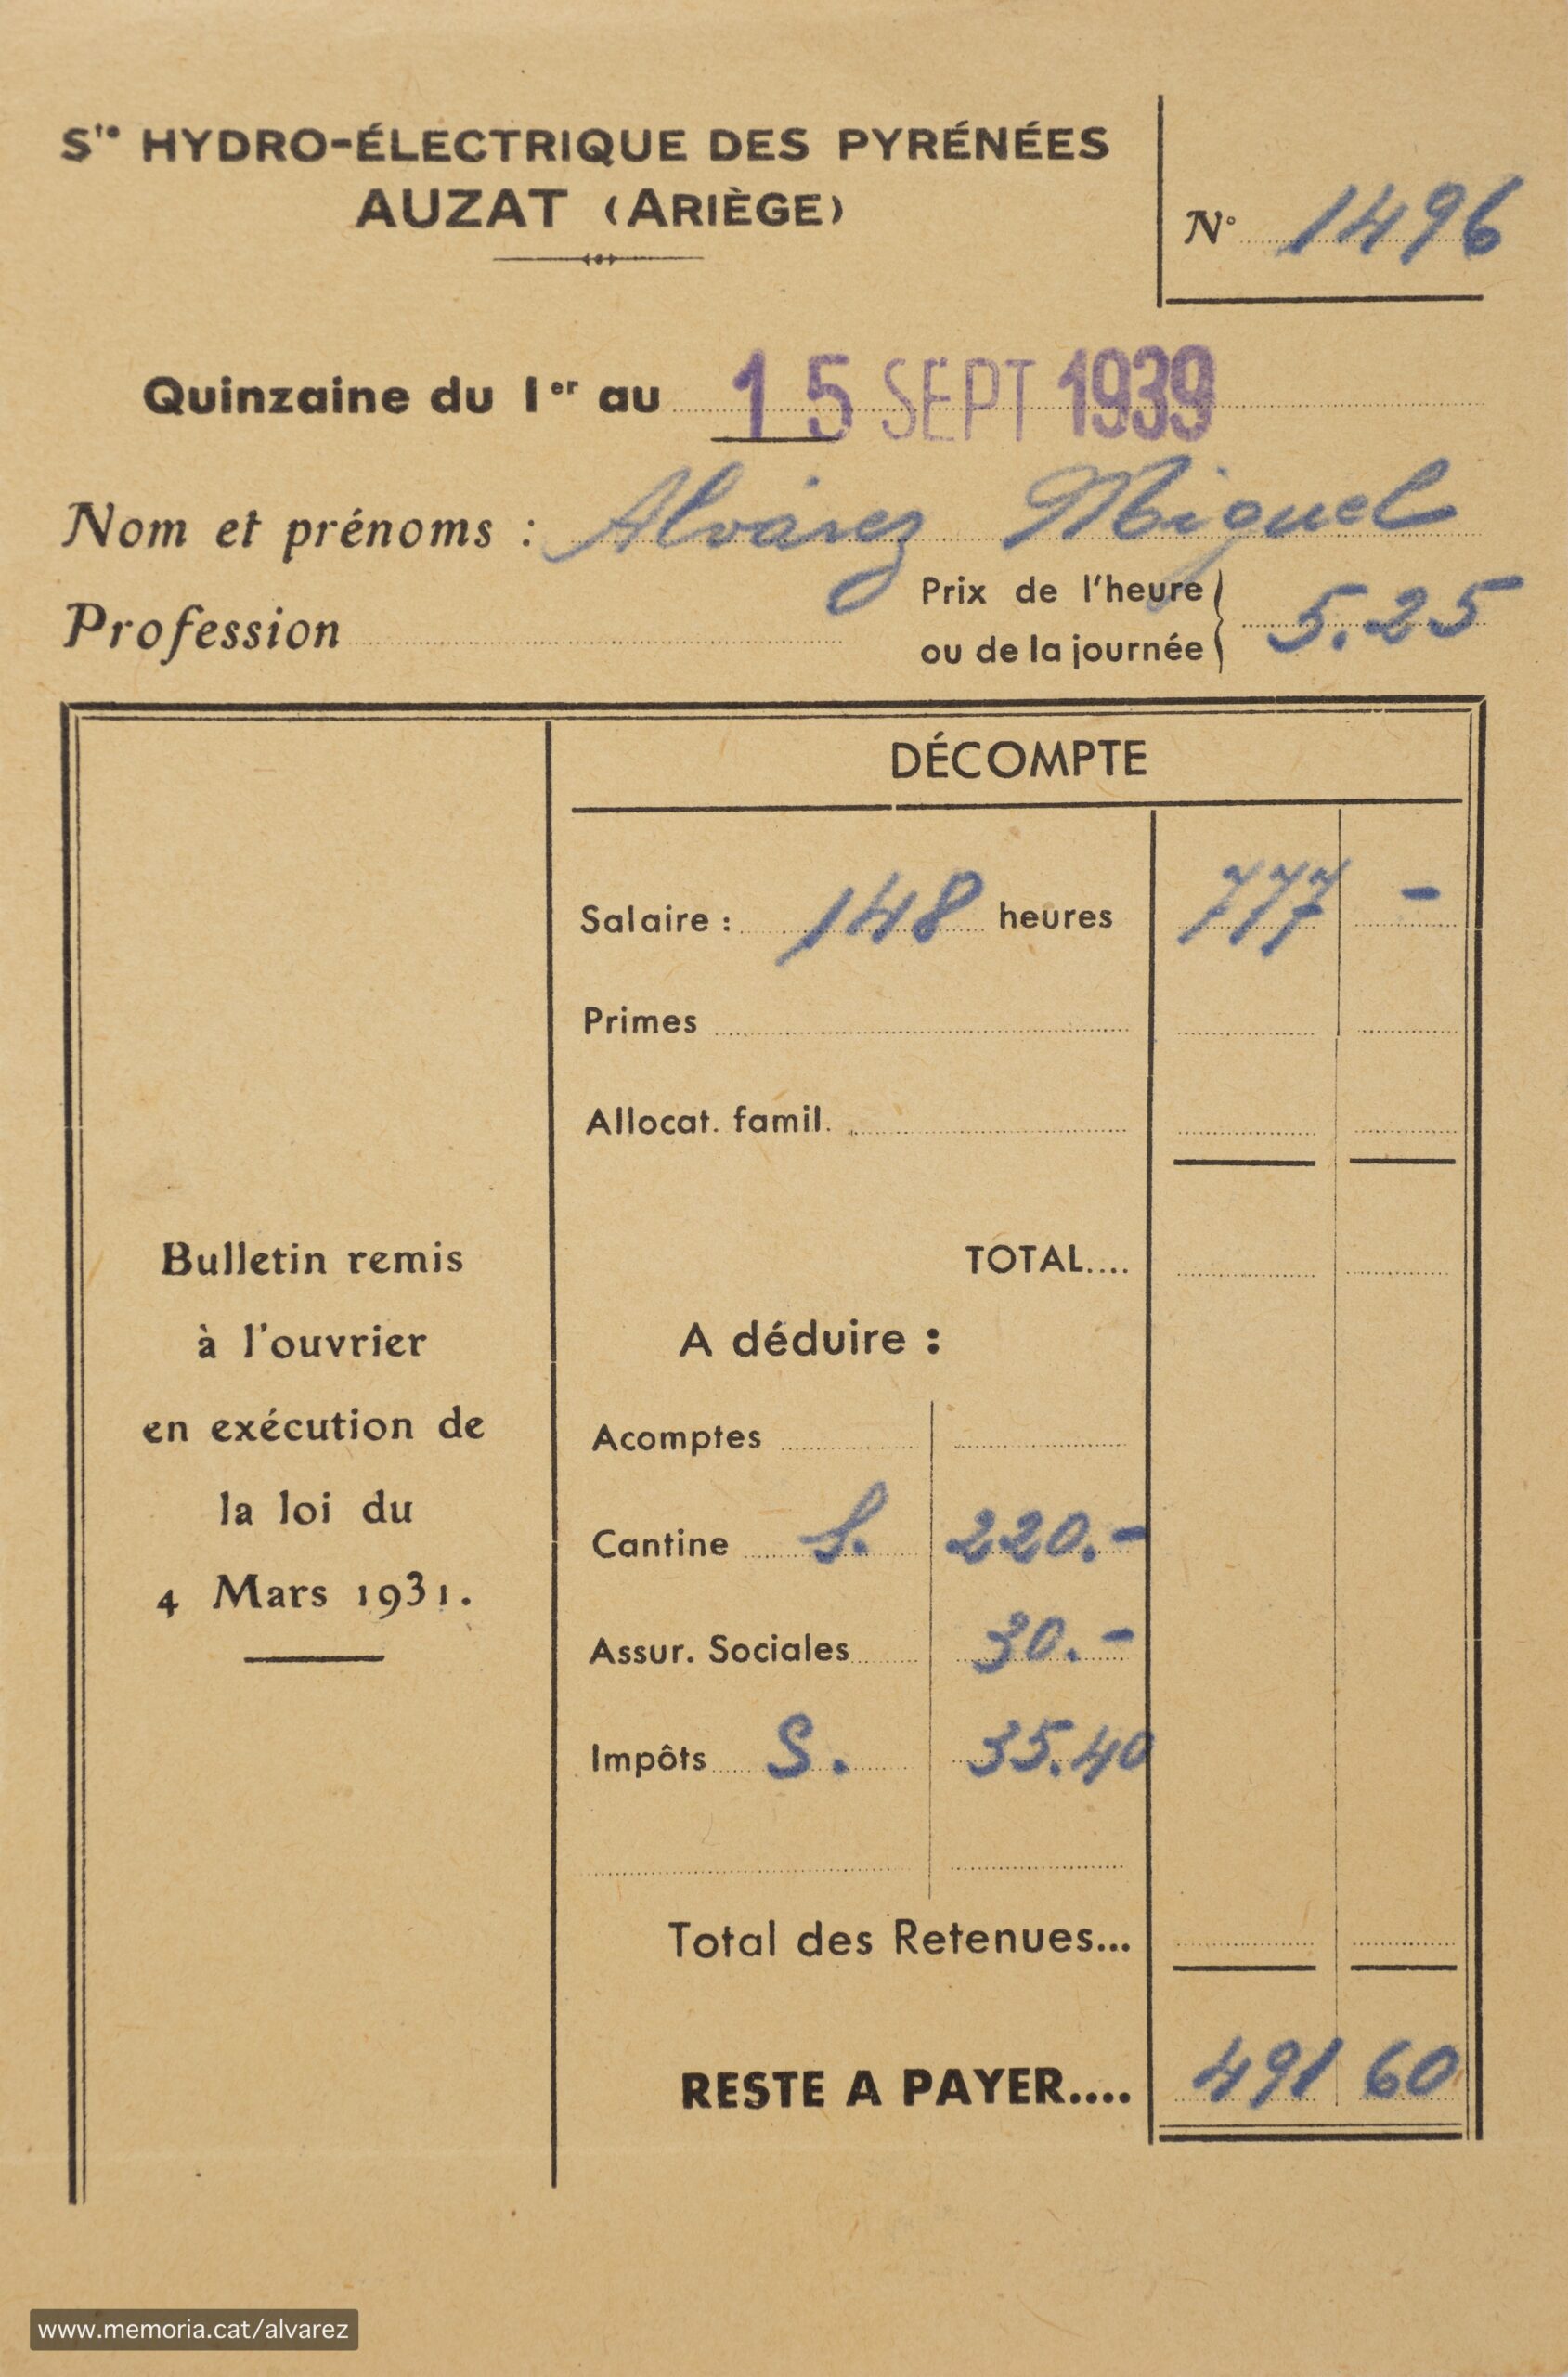 Sté HYDRO-ÉLECTRIQUE DES PYRÉNÉES
AUZAT (ARIÈGE)
N° 1496
Quinzaine du 1er au 15 SEPT 1939
Nom et prénoms : Alvárez Miguel
Profession
Prix de l'heure
ou de la journée
5.25
DÉCOMPTE
Salaire : 148 heures 777 -
Primes
Allocat. famil.
TOTAL....
Bulletin remis
à l'ouvrier
en exécution de
la loi du
4 Mars 1931.
A déduire :
Acomptes
Cantine S. 220.-
Assur. Sociales 30.-
Impôts S. 35.40
Total des Retenues...
RESTE A PAYER.... 491 60
www.memoria.cat/alvarez